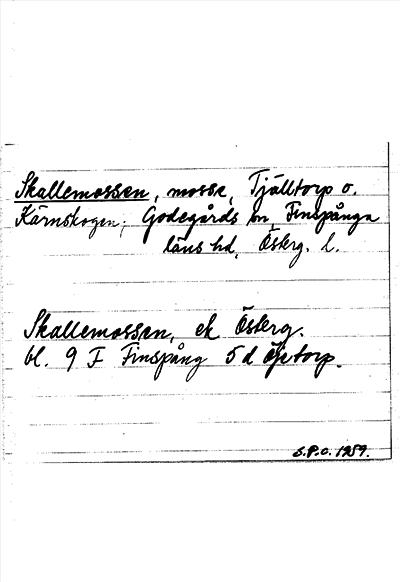 Skallemossen, mosse, Tjälltorp o.
Kärnskogen, Godegårds sn, Finspånga
läns hd, Österg. l.
Skallemossen, ek Österg.
bl. 9 F Finspång 5 d Öjetorp.
S.P.O. 1959.